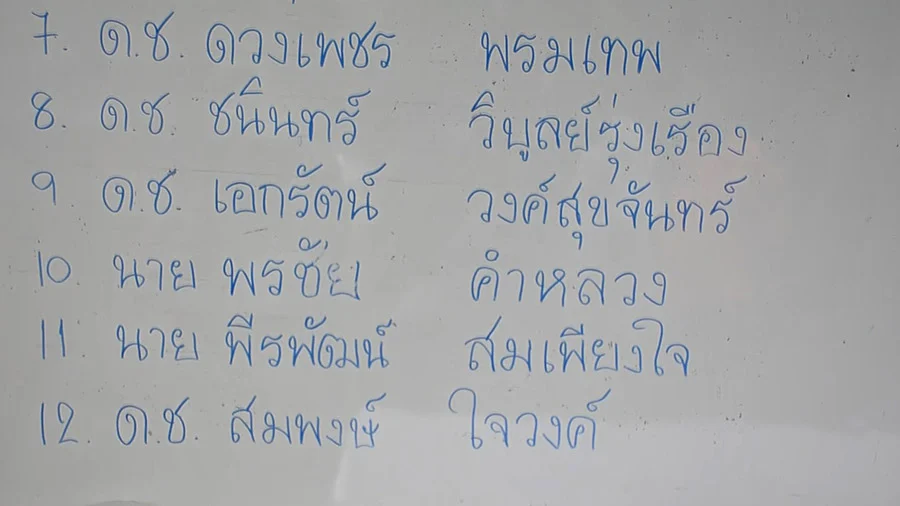 7. ด.ช. ดวงเพชร พรมเทพ
8. ด.ช. ชนินทร์ วิบูลย์รุ่งเรือง
9. ด.ช. เอกรัตน์ วงค์สุขจันทร์
10. นาย พรชัย คำหลวง
11. นาย พีรพัฒน์ สมเพียงใจ
12. ด.ช. สมพงษ์ ใจวงค์